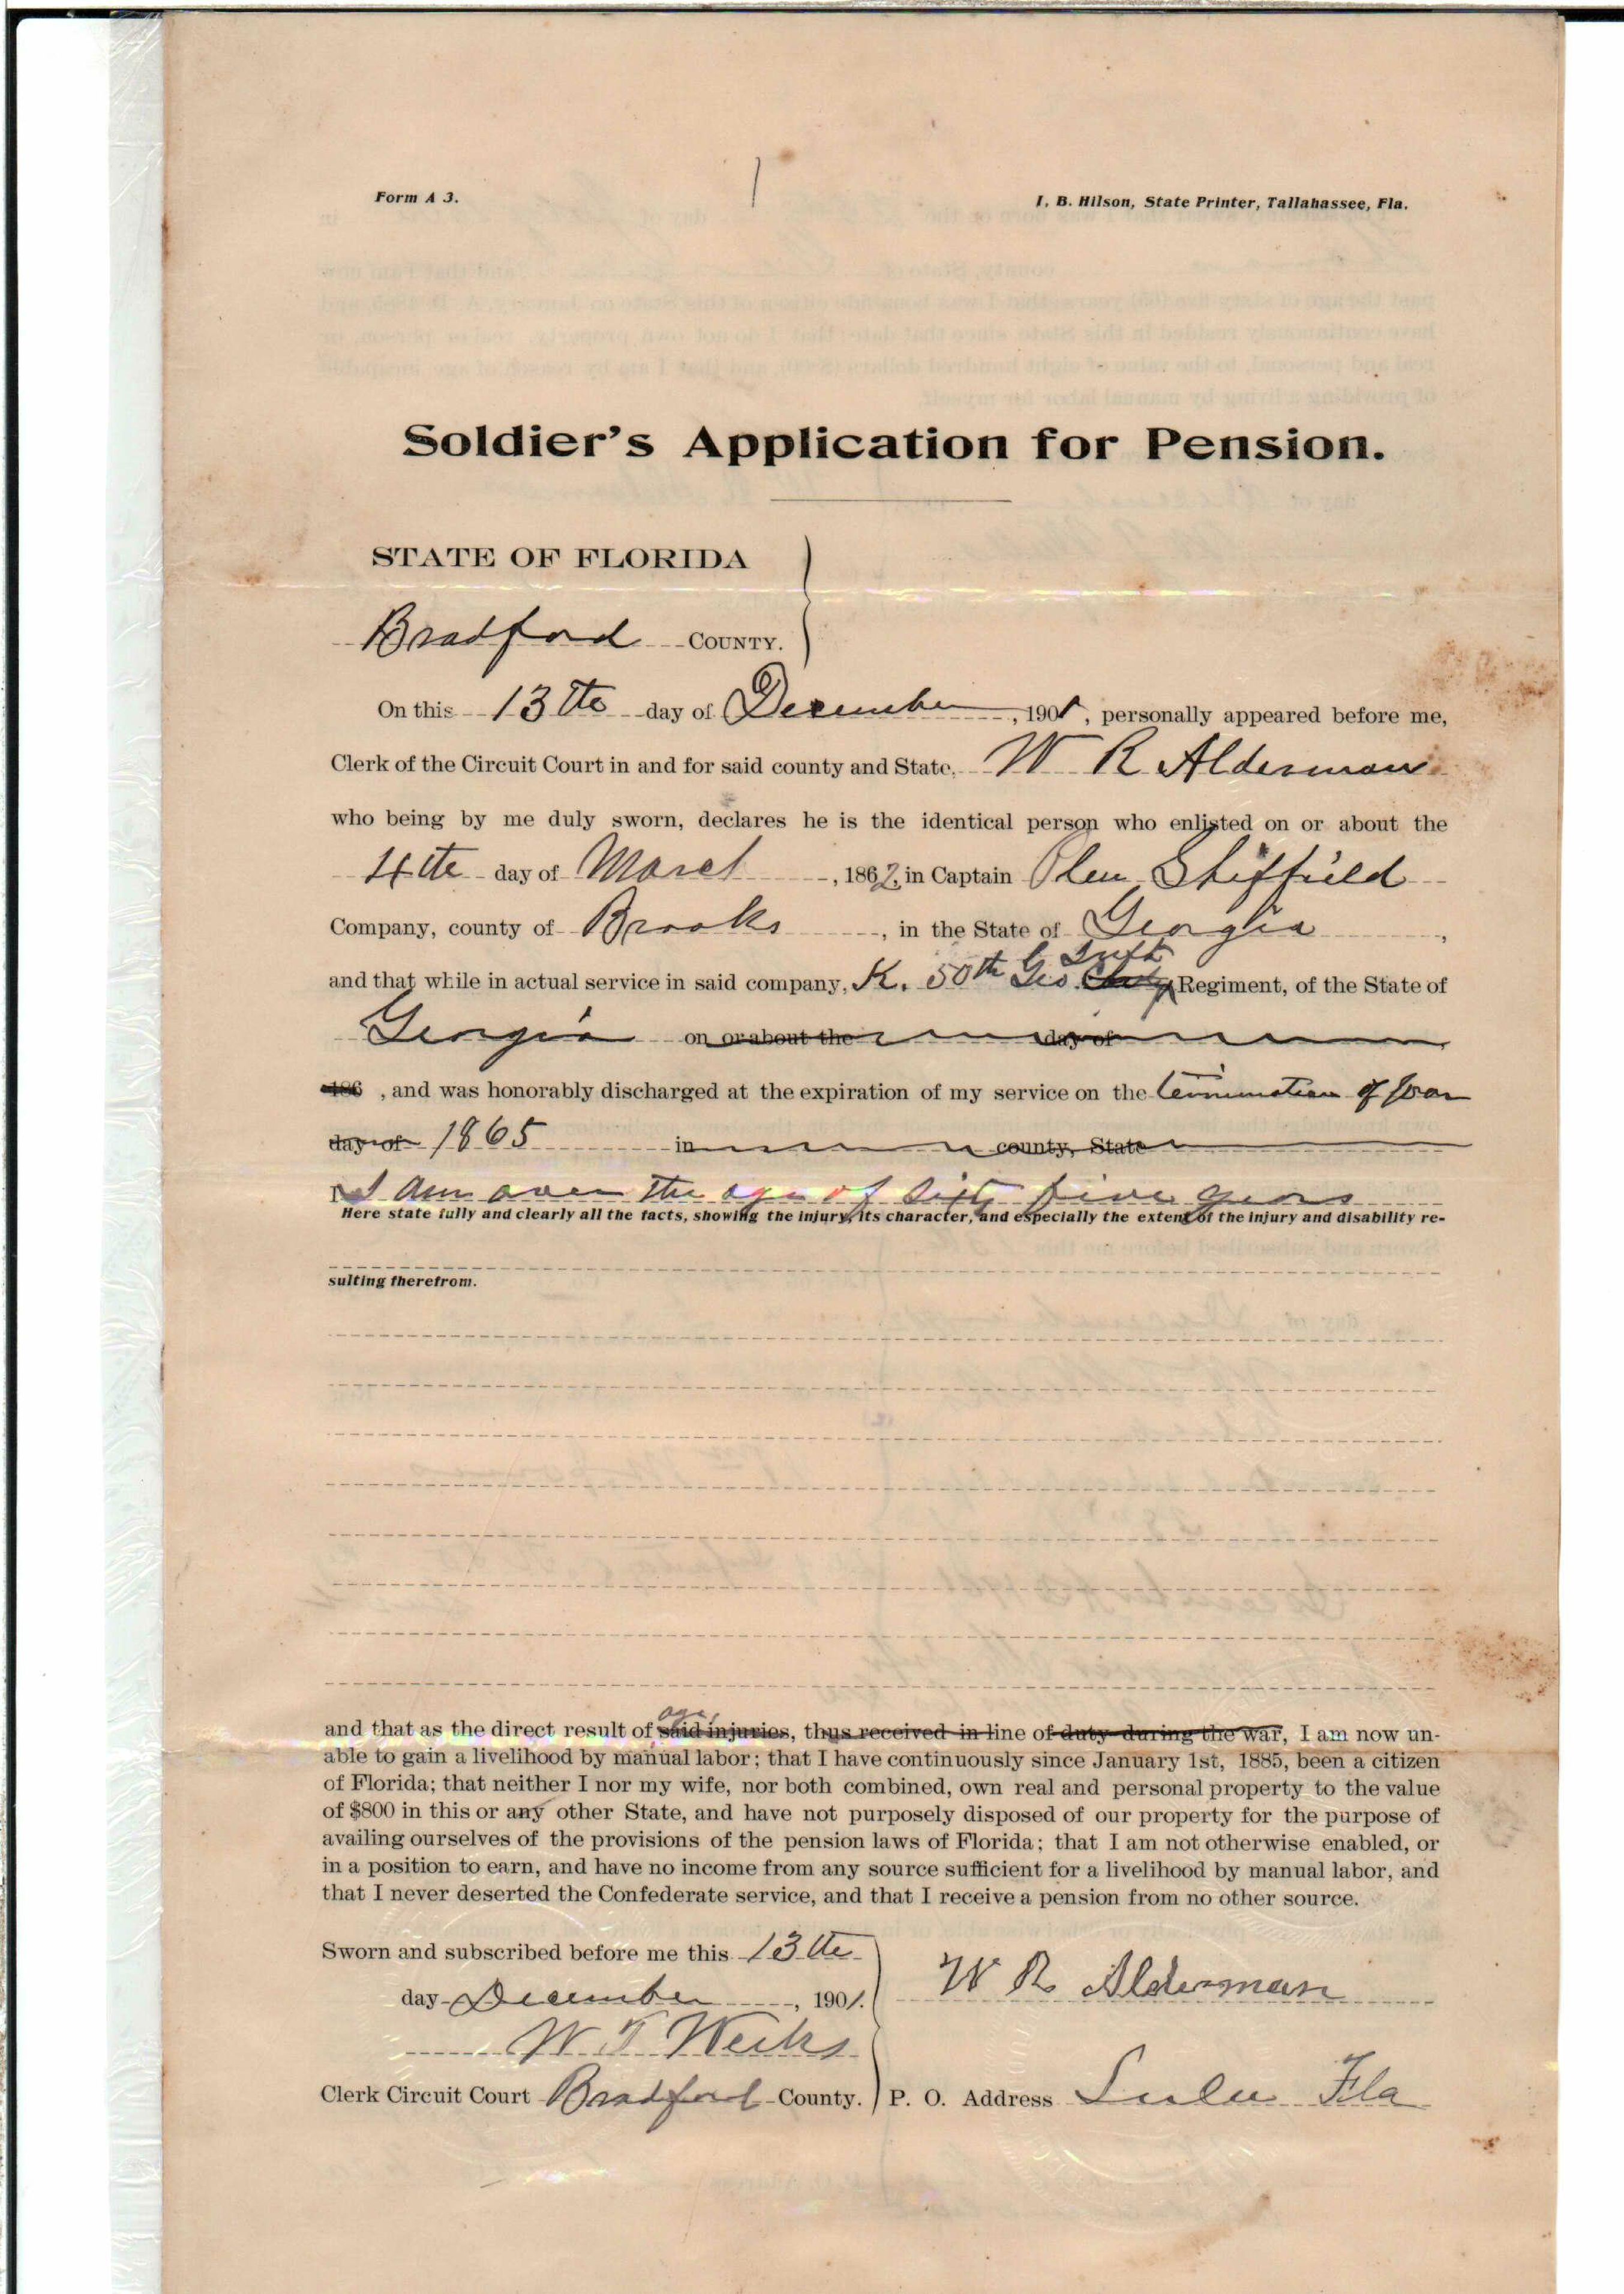 Form A 3.
1
I. B. Hilson, State Printer, Tallahassee, Fla.
Soldier's Application for Pension.
STATE OF FLORIDA
Bradford COUNTY.
On this 13th day of December, 1901, personally appeared before me,
Clerk of the Circuit Court in and for said county and State, W R Alderman
who being by me duly sworn, declares he is the identical person who enlisted on or about the
4th day of March, 1862, in Captain Olen Sheffield
Company, county of Brooks, in the State of Georgia,
Inft
and that while in actual service in said company, K. 50th Geo Regiment, of the State of
Georgia on or about the day of
186 , and was honorably discharged at the expiration of my service on the termination of war
day of 1865 in county, State
I am over the age of sixty five years
Here state fully and clearly all the facts, showing the injury, its character, and especially the extent of the injury and disability re-
sulting therefrom.
age,
and that as the direct result of said injuries, thus received in line of duty during the war, I am now un-
able to gain a livelihood by manual labor; that I have continuously since January 1st, 1885, been a citizen
of Florida; that neither I nor my wife, nor both combined, own real and personal property to the value
of $800 in this or any other State, and have not purposely disposed of our property for the purpose of
availing ourselves of the provisions of the pension laws of Florida; that I am not otherwise enabled, or
in a position to earn, and have no income from any source sufficient for a livelihood by manual labor, and
that I never deserted the Confederate service, and that I receive a pension from no other source.
Sworn and subscribed before me this 13th
day December, 1901.
W R Alderman
W T Weeks
Clerk Circuit Court Bradford County.
P. O. Address Lulu Fla